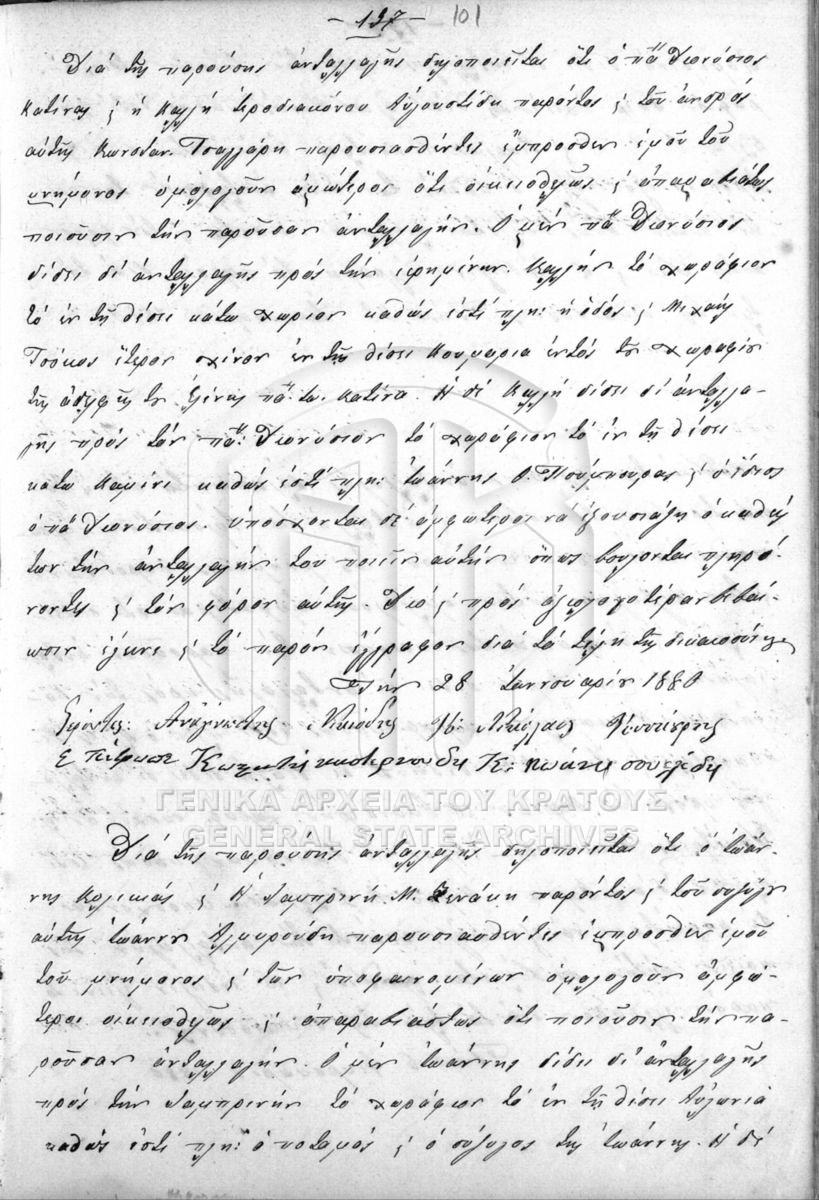 - 137 - 101
Διά τῆς παρούσης ἀνταλλαγῆς δηλοποιεῖται ὅτι ὁ πᾶ Διονύσιος
Κατίνας ς ἡ Καλή ἱεροδιακόνου Αὐγουστίδη παρόντος ς τοῦ ἀνδρός
αὐτῆς Κωνσταν. Τσαλλάρη παρουσιασθέντες ἔμπροσθεν ἐμοῦ τοῦ
μνήμονος ὁμολογοῦν ἀμφώτεροι ὅτι οἰκειοθελῶς ς ἀπαραβιάστως
ποιοῦσιν τήν παροῦσαν ἀνταλλαγήν. Ὁ μέν πᾶ Διονύσιος
δίδει δί ἀνταλλαγῆς πρός τήν εἰρημένην Καλλήν τό χωράφιον
τό ἐν τῇ θέσει κάτω χωρίον καθώς ἐστί πλη: ἡ ὁδός ς Μιχαήλ
Τσόκος ἕτερον σχίνον ἐν τῇ θέσει Κουμαριά ἐντός τοῦ χωραφίου
τῆς ἀδελφῆς του Ἑλένης πᾶ: Κατίνα. Ἡ δέ Καλή δίδει δί ἀνταλλα-
γῆς πρός τόν πᾶ: Διονύσιον τό χωράφιον τό ἐν τῇ θέσει
κάτω Καμίνι καθώς ἐστί πλη: Ἰωάννης Πούμπουρας ς ὁ ἴδιος
ὁ πᾶ Διονύσιος. ὑπόσχονται δέ ἀμφώτεροι νά ἐξουσιάζῃ ὁ καθείς
των τήν ἀνταλλαγήν του ποιεῖν αὐτήν ὅπως βούλονται πληρό-
νοντες ς τόν φόρον αὐτῆς. Διό ς πρός ἀξιολογοτέραν βεβαί-
ωσιν ἐγένετο ς τό παρόν ἔγγραφον διά τά τέλη τῆς δικαιοσύνης
Τήν 28 Ἰαννουαρίου 1880
Ἐφόντες: Ἀναγνώστης Νικόλαος
Ἐπίτροποι Κ:
ΓΕΝΙΚΑ ΑΡΧΕΙΑ ΤΟΥ ΚΡΑΤΟΥΣ
GENERAL STATE ARCHIVES
Διά τῆς παρούσης ἀνταλλαγῆς δηλοποιεῖται ὅτι ὁ Ἰωάν-
νης Κολικιάς ς Ἡ Λαμπρινή Μ. Ξενάκη παρόντος ς τοῦ συζύγου
αὐτῆς Ἰωάννου Ἀλμυρούδη παρουσιασθέντες ἔμπροσθεν ἐμοῦ
τοῦ μνήμονος ς τῶν ὑποφαινομένων ὁμολογοῦν ἀμφώ-
τεροι οἰκειοθελῶς ς ἀπαραβιάστως ὅτι ποιοῦσιν τήν πα-
ροῦσαν ἀνταλλαγήν. Ὁ μέν Ἰωάννης δίδει δί ἀνταλλαγῆς
πρός τήν Λαμπρινήν τό χωράφιον τό ἐν τῇ θέσει Αὐλωνιά
καθώς ἐστί πλη: ὁ ποταμός ς ὁ σύζυγος της Ἰωάννης. Ἡ δέ